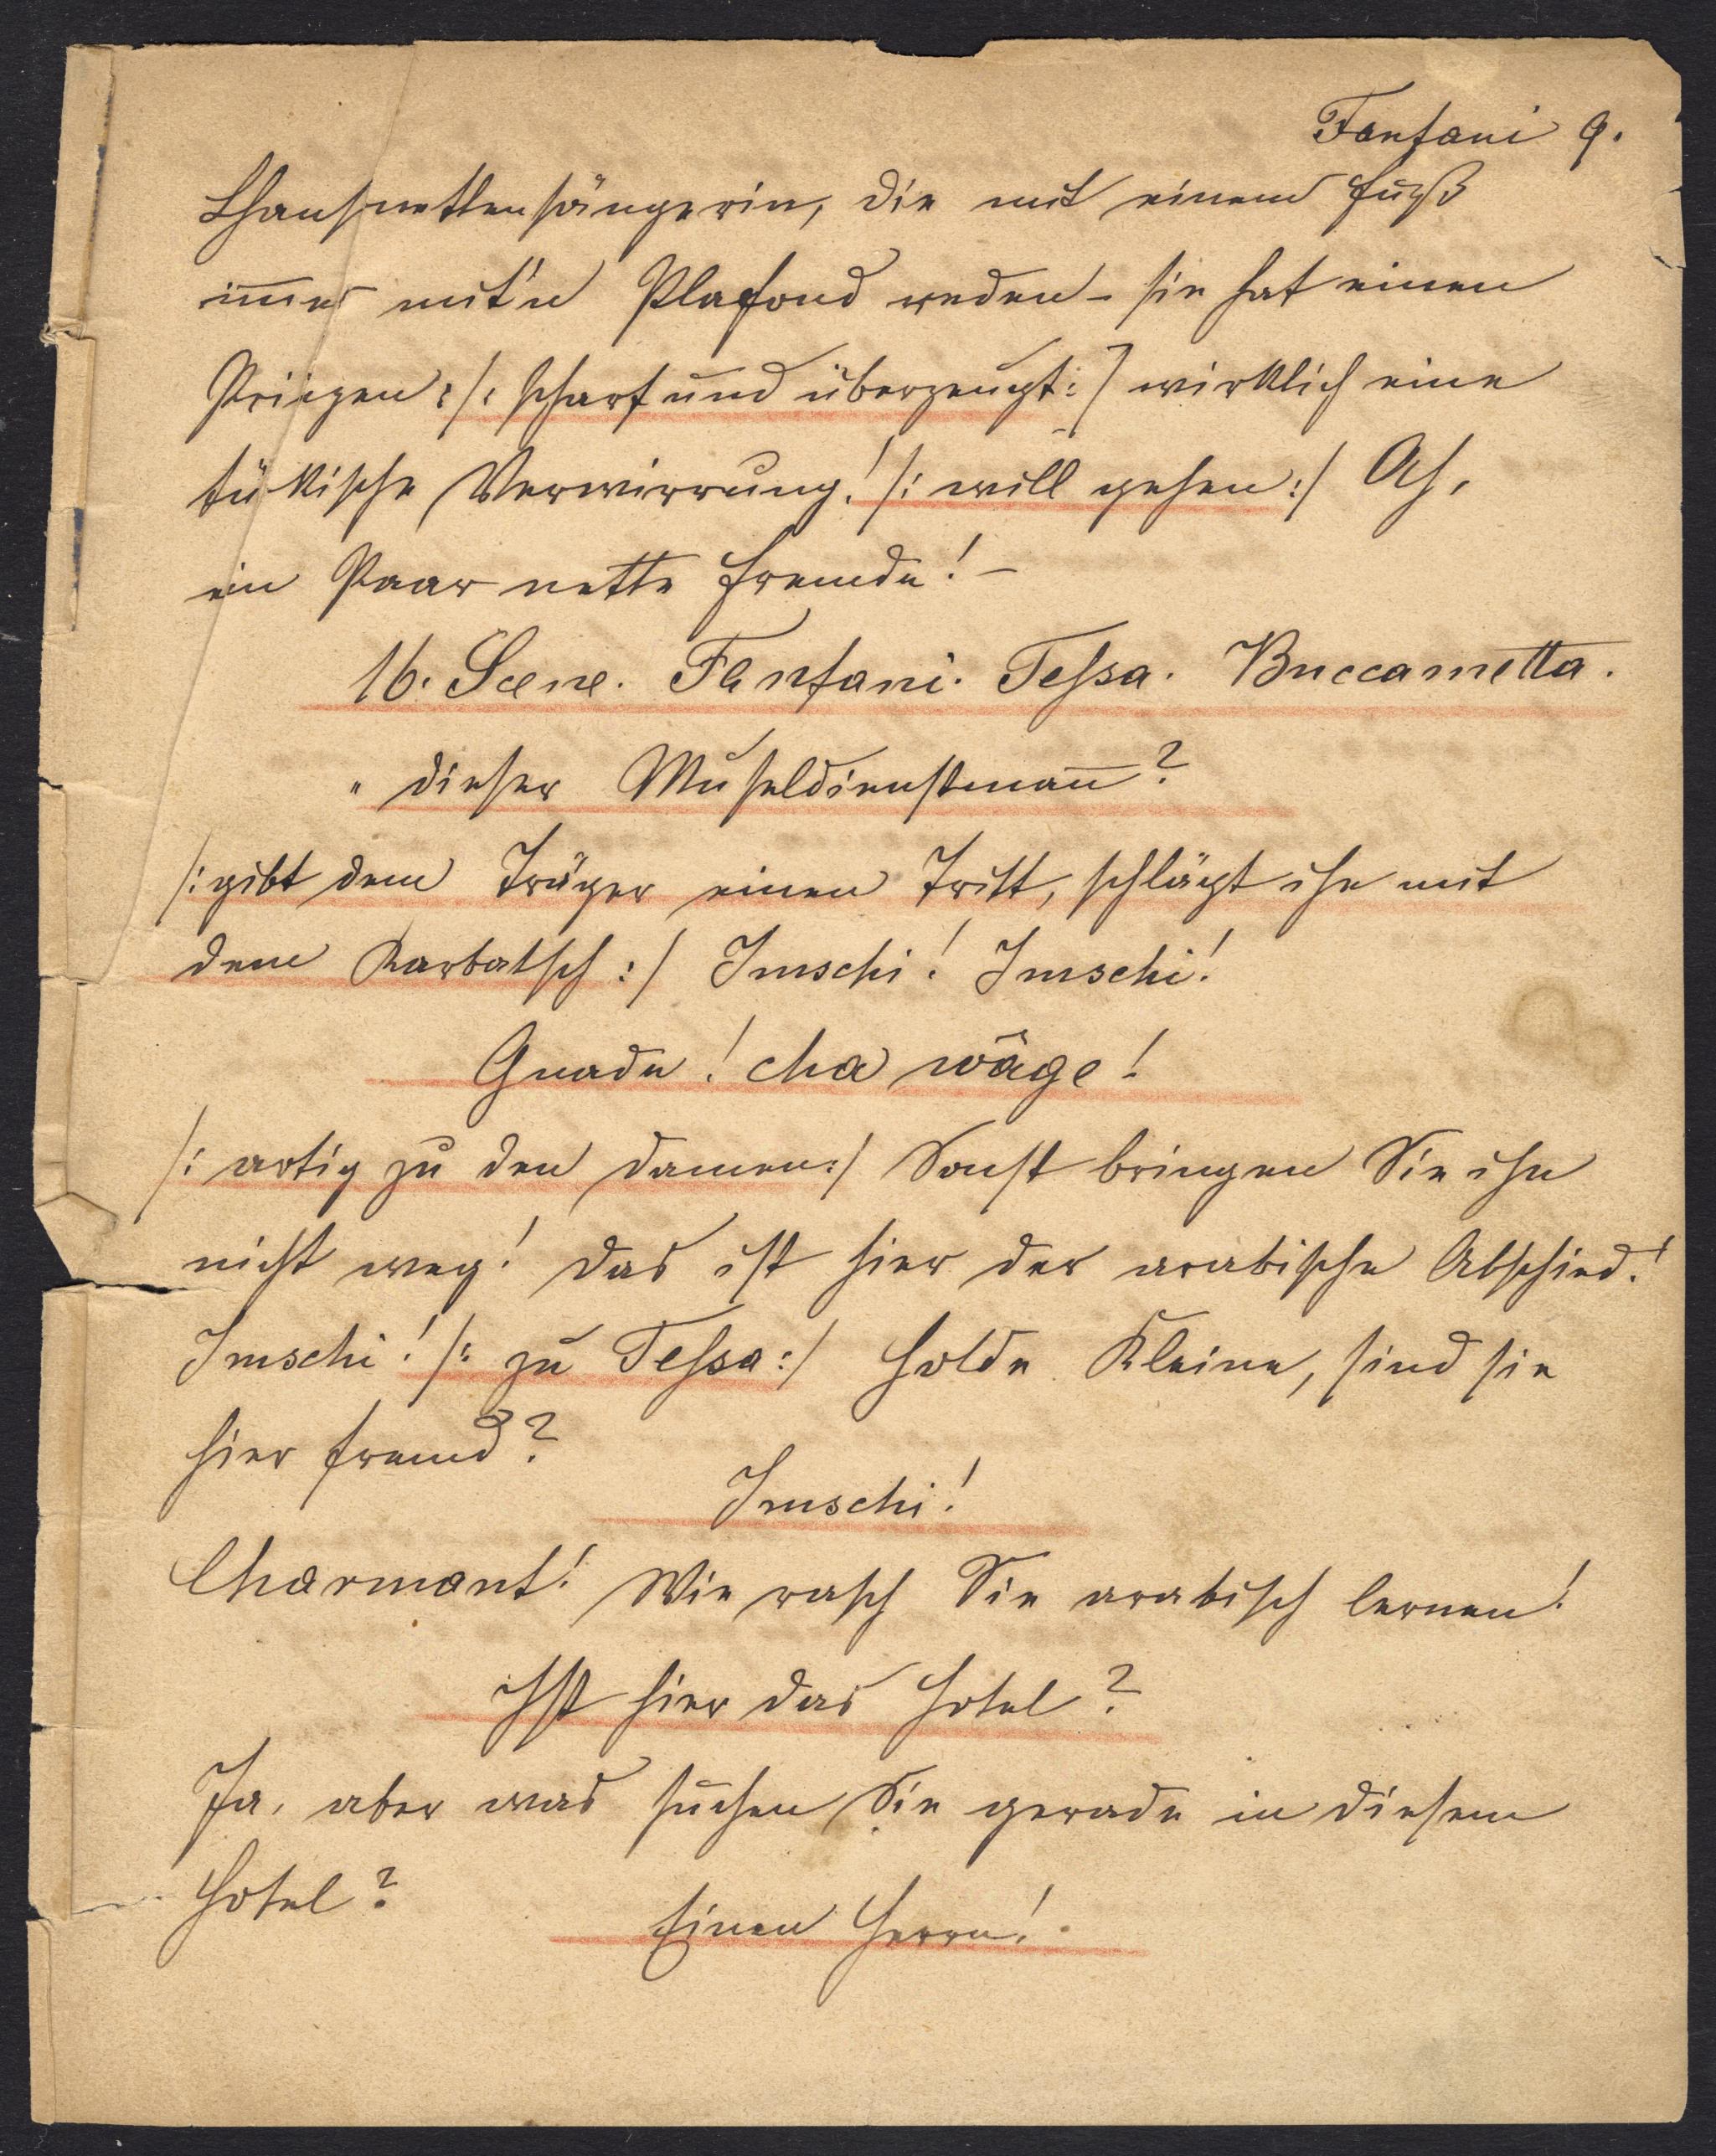 Fanfani 9.
Chansonettensängerin, die mit einem Fuß
im̅er mit'n Plafond reden – sie hat einen
Kriegen: /: scharf und überzeugt :/ wirklich eine
türkische Verwirrung! /: will gehen :/ Ah,
ein Paar nette Fremde! –
16. Scene. Fanfani. Tessa. Buccametta.
" dieser Museldienstman̅?
/: gibt dem Träger einen Tritt, schlägt ihn mit
dem Karbatsch :/ Imschi! Imschi!
Gnade! cha wäge!
/: artig zu den Damen :/ Sonst bringen Sie ihn
nicht weg! Das ist hier der arabische Abschied!
Imschi! /: zu Tessa :/ Holde Kleine, sind sie
hier fremd?
Imschi!
Charmant! Wie rasch Sie arabisch lernen!
Ist hier das Hotel?
Ja, aber was suchen Sie gerade in diesem
Hotel?
Einen Herrn!